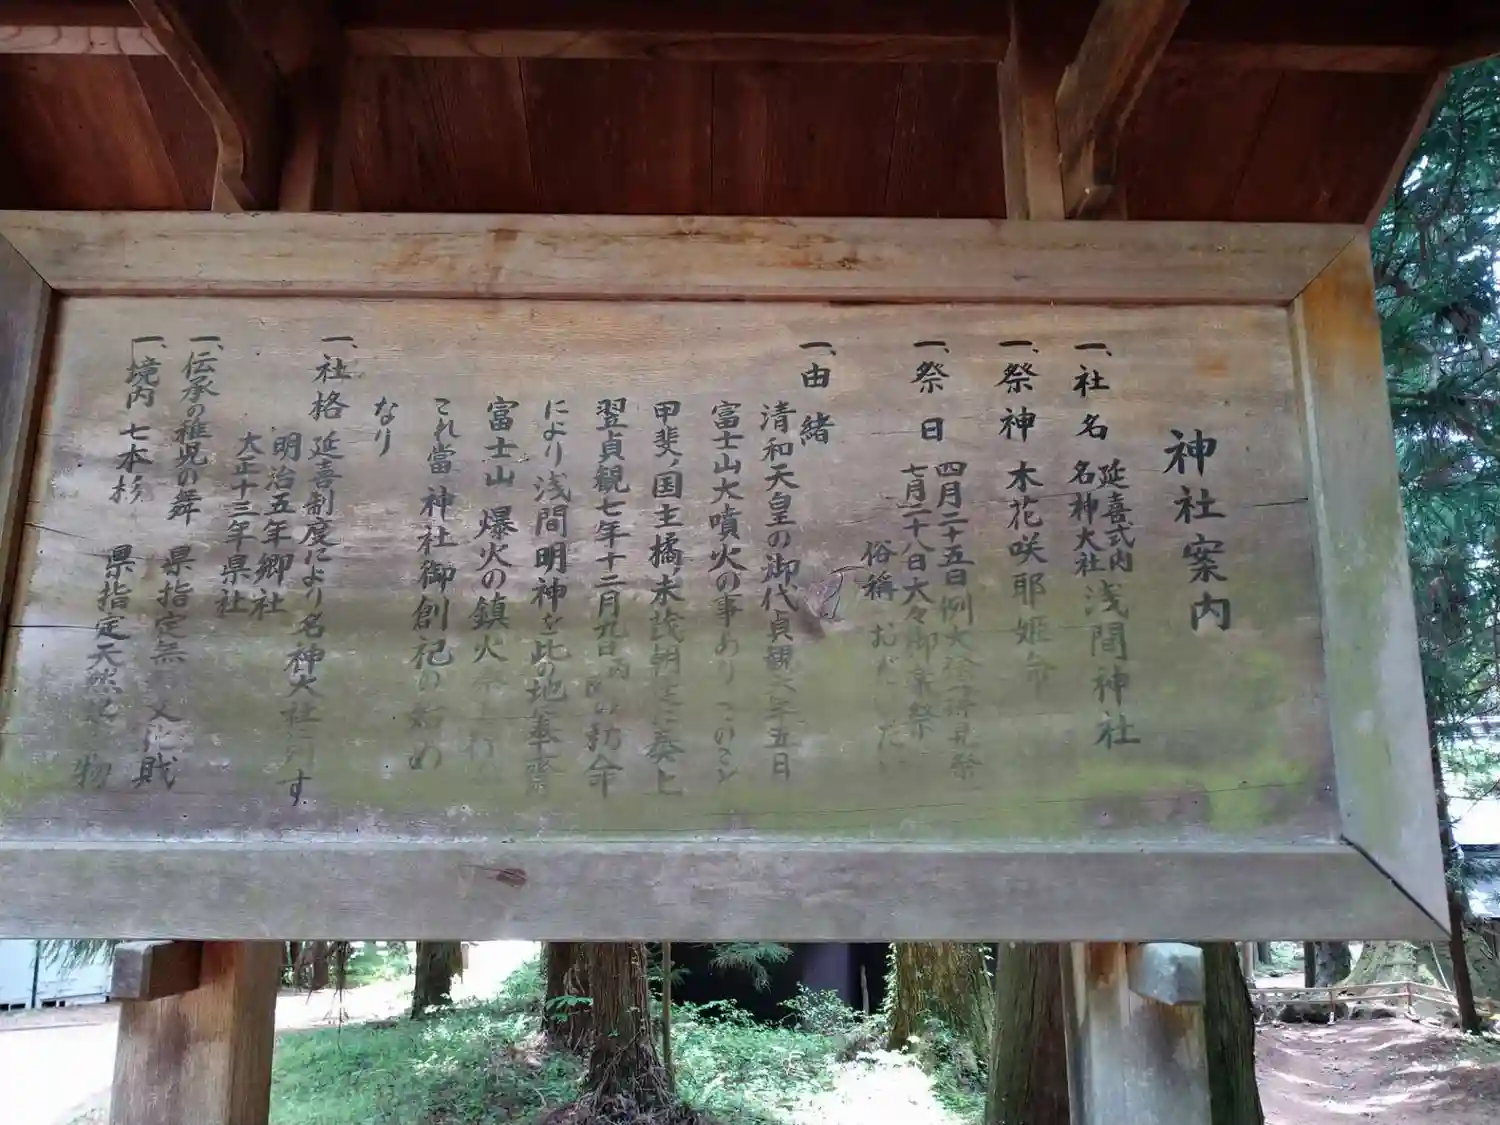 神社案内
一、社名 延喜式内 名神大社 浅間神社
一、祭神 木花咲耶姫命
一、祭日 四月二十五日例大祭
七月二十八日大々御楽祭
俗稱 おだいだい
一、由緒
清和天皇の御代貞観六年五日
富士山大噴火の事あり
甲斐ノ国主橘末茂朝廷に奏上
翌貞観七年十二月九日 勅命
により浅間明神を此の地に奉斎
富士山爆火の鎮火祭
これ當神社御創祀の始め
なり
一、社格 延喜制度により名神大社に列す
明治五年郷社
大正十三年県社
一、伝承の稚児の舞 県指定無 文化財
一、境内七本杉 県指定天然 物